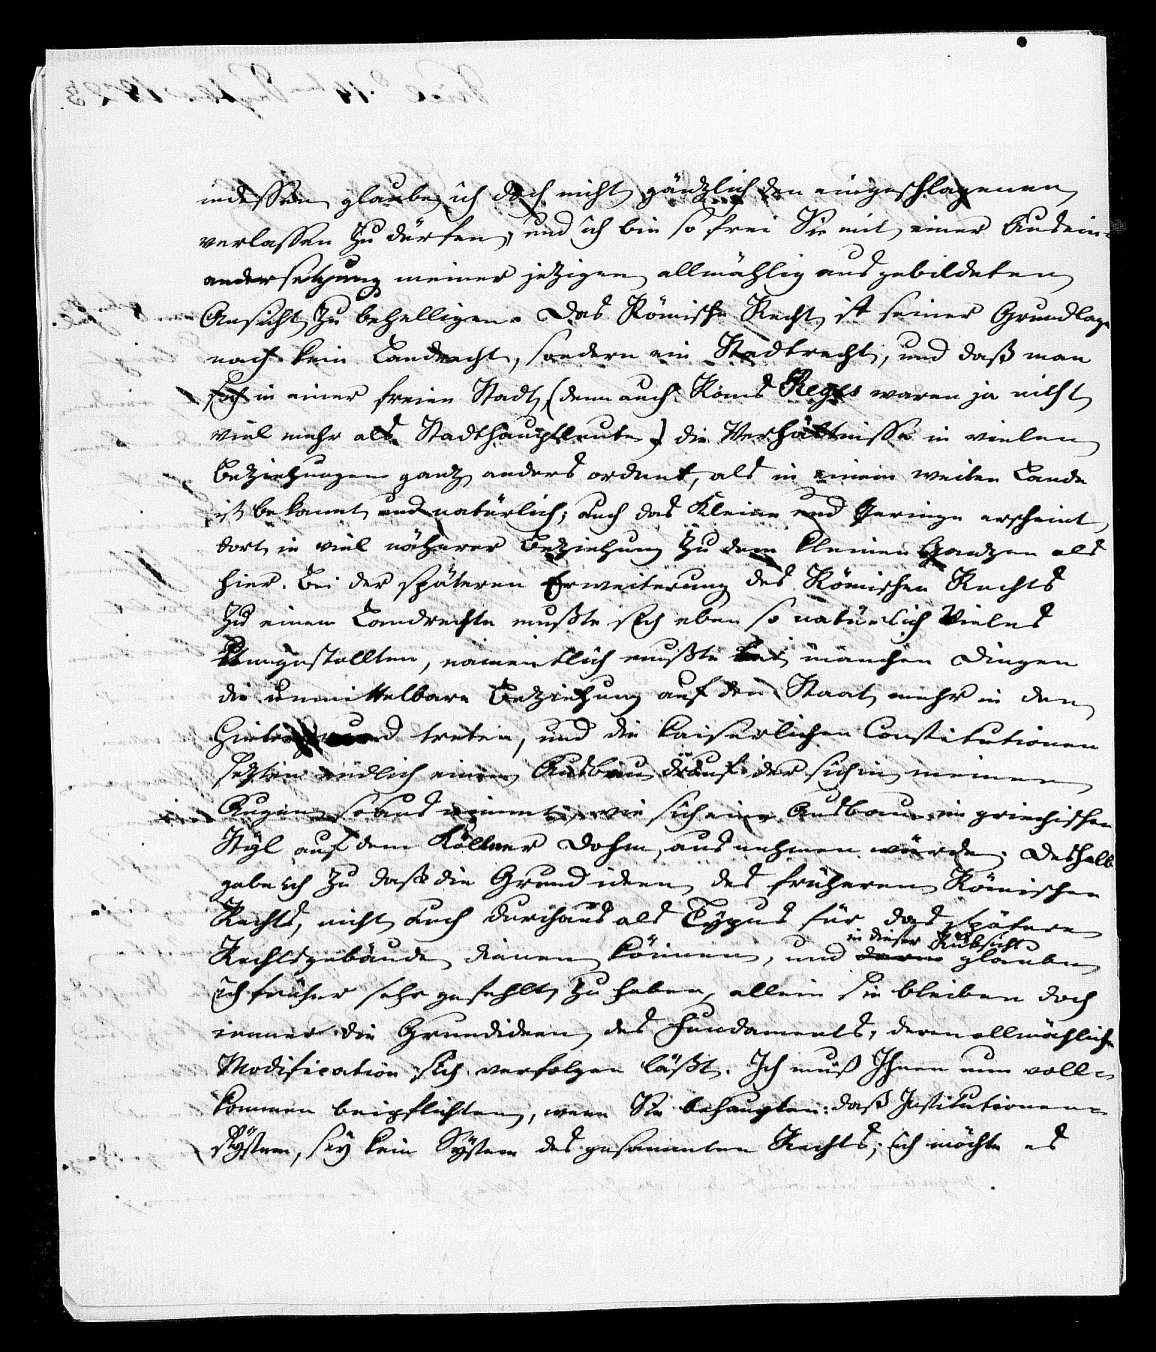 indessen glaube ich doch nicht gänzlich den eingeschlagenen
verlassen zu dürfen, und ich bin so frei Sie mit einer Ausein-
andersetzung meiner jetzigen allmählig ausgebildeten
Ansicht zu behelligen. Das Römische Recht ist seiner Grundlage
nach kein Landrecht, sondern ein Stadtrecht, und daß man
sich in einer freien Stadt, (denn auch Roms Reges waren ja nicht
viel mehr als Stadthauptleute) die Verhältnisse in vielen
Beziehungen ganz anders ordnet, als in einem weiten Lande
ist bekannt und natürlich; auch das Kleine und Geringe erscheint
dort in viel näherer Beziehung zu dem kleinen Ganzen als
hier. Bei der späteren Erweiterung des Römischen Rechts
zu einem Landrechte mußte sich eben so natürlich Vieles
umgestalten, namentlich mußte bei manchen Dingen
die unmittelbare Beziehung auf den Staat mehr in den
Hintergrund treten, und die kaiserlichen Constitutionen
setzten endlich einen Ausbau drauf der sich in meinen
Augen so ausnimmt, wie sich ein Ausbau im griechischen
Styl auf dem Köllner Dohm ausnehmen würde. Deshalb
gebe ich zu daß die Grundideen des früheren Römischen
Rechts, nicht auch durchaus als Typus für das spätere
Rechtsgebäude dienen können, und in dieser Rücksicht glaube
ich früher sehr gefehlt zu haben, allein sie bleiben doch
immer die Grundideen des Fundaments, deren allmähliche
Modification sich verfolgen läßt. Ich muß Ihnen nun voll-
kommen beipflichten, wenn Sie behaupten: daß Institutionen-
system, sey kein System des gesammten Rechts; ich möchte es